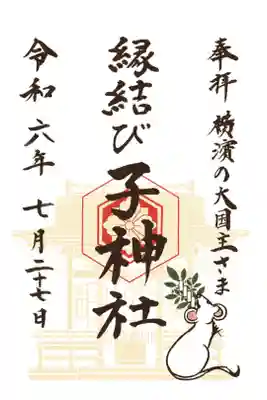 奉拝 横濱の大国主さま
縁結び
子神社
令和六年 七月二十七日